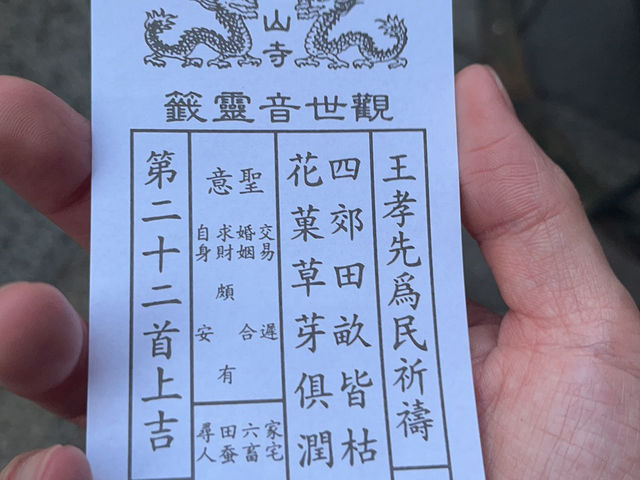 山寺
觀世音靈籤
王孝先爲民祈禱
四郊田畝皆枯
花菓草芽俱潤
聖意
交易遲
婚姻合
求財頗有
自身安
家宅
六畜
田蚕
尋人
第二十二首上吉